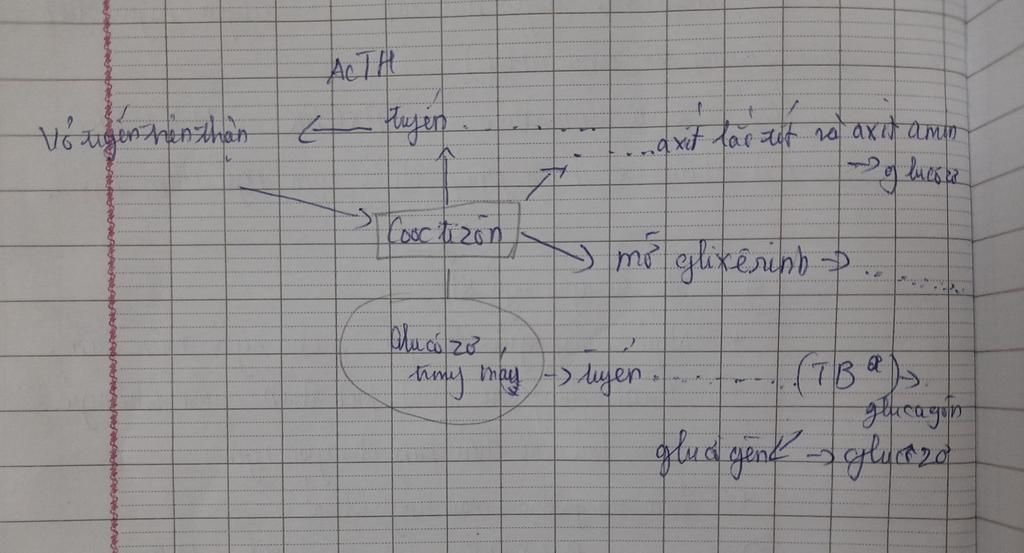 ACTH
Vỏ tuyến trên thận ← tuyến . . . . . . .
. ....axit lắc tít và axit amin
→ glucôzơ
Cooctizôn
mỡ glixêrinh → . . ........
Glucôzơ
trong máu → tuyến ............ (TB α) →
glucagôn
glucôgen → glucôzơ